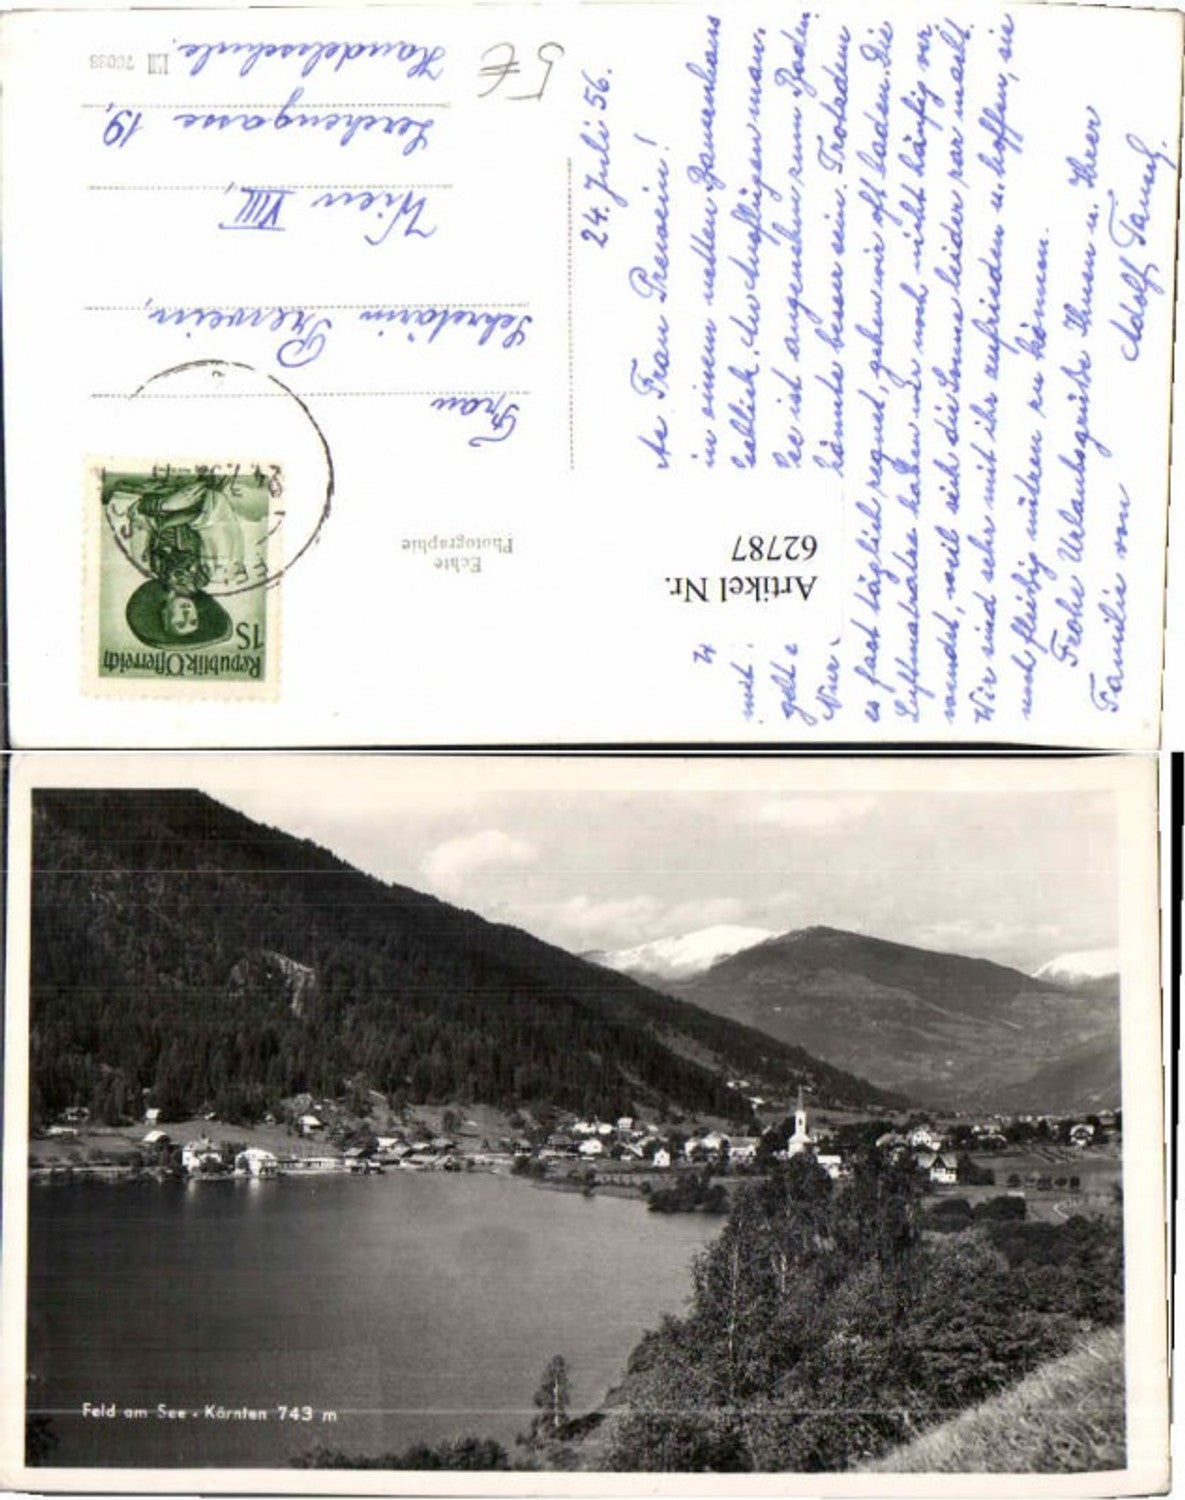 24. Juli 56.
Frau Prewein!
in einem netten Bauernhaus
es ist angenehm zum Baden.
könnte besser sein. Trotzdem
Nur
es fast täglich regnet, gehen wir oft baden. Die
Luftmatratze haben wir noch nicht häufig ver-
wendet, weil sich die Sonne leider rar macht.
Wir sind sehr mit ihr zufrieden u. hoffen, sie
noch fleißig nützen zu können.
Frohe Urlaubsgrüße Ihnen u. Ihrer
Familie von
Adolf
Artikel Nr.
62787
Echte
Photographie
Republik Österreich
1S
Frau
Sekretärin Prewein,
Wien VIII,
Lerchengasse 19,
Handelsschule.
5 €
Feld am See - Kärnten 743 m